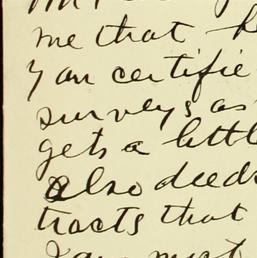 me that
you certifie
surveys as
gets a littl
also deeds
tracts that